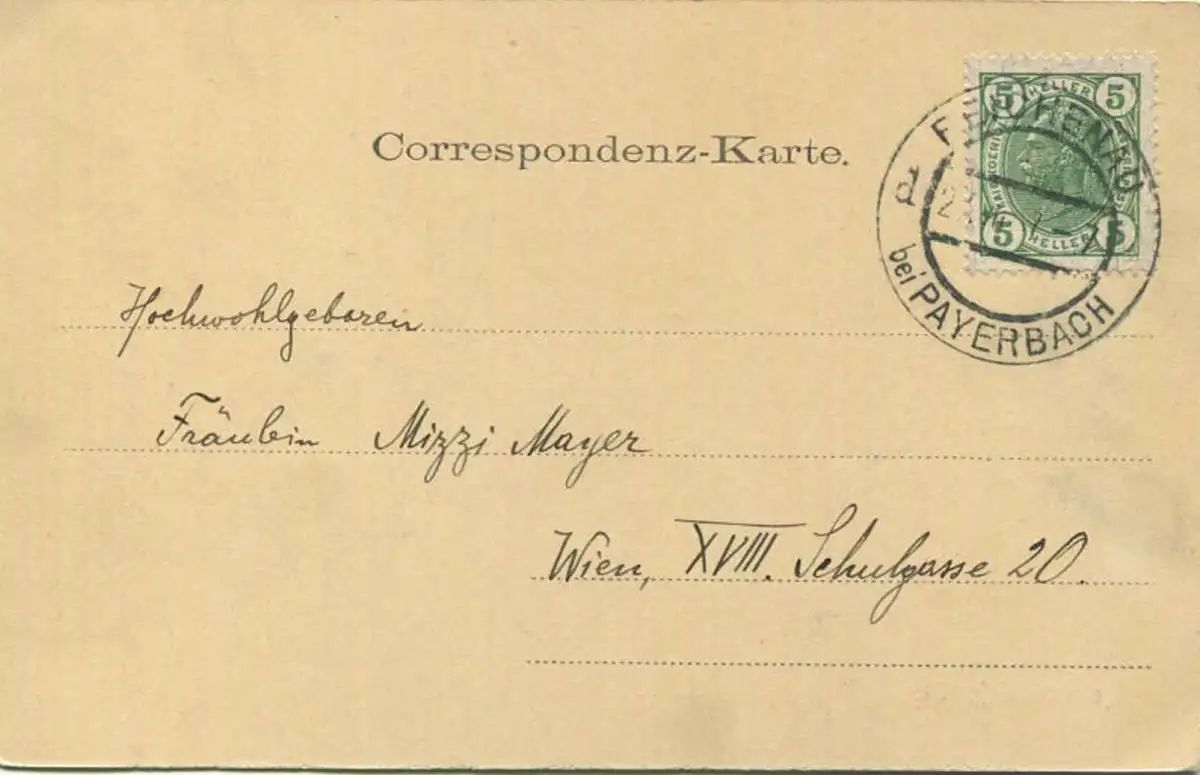 Correspondenz-Karte.
5 HELLER 5
5 HELLER 5
REICHENAU
bei PAYERBACH
Hochwohlgeboren
Fräulein Mizzi Mayer
Wien, XVIII. Schulgasse 20.